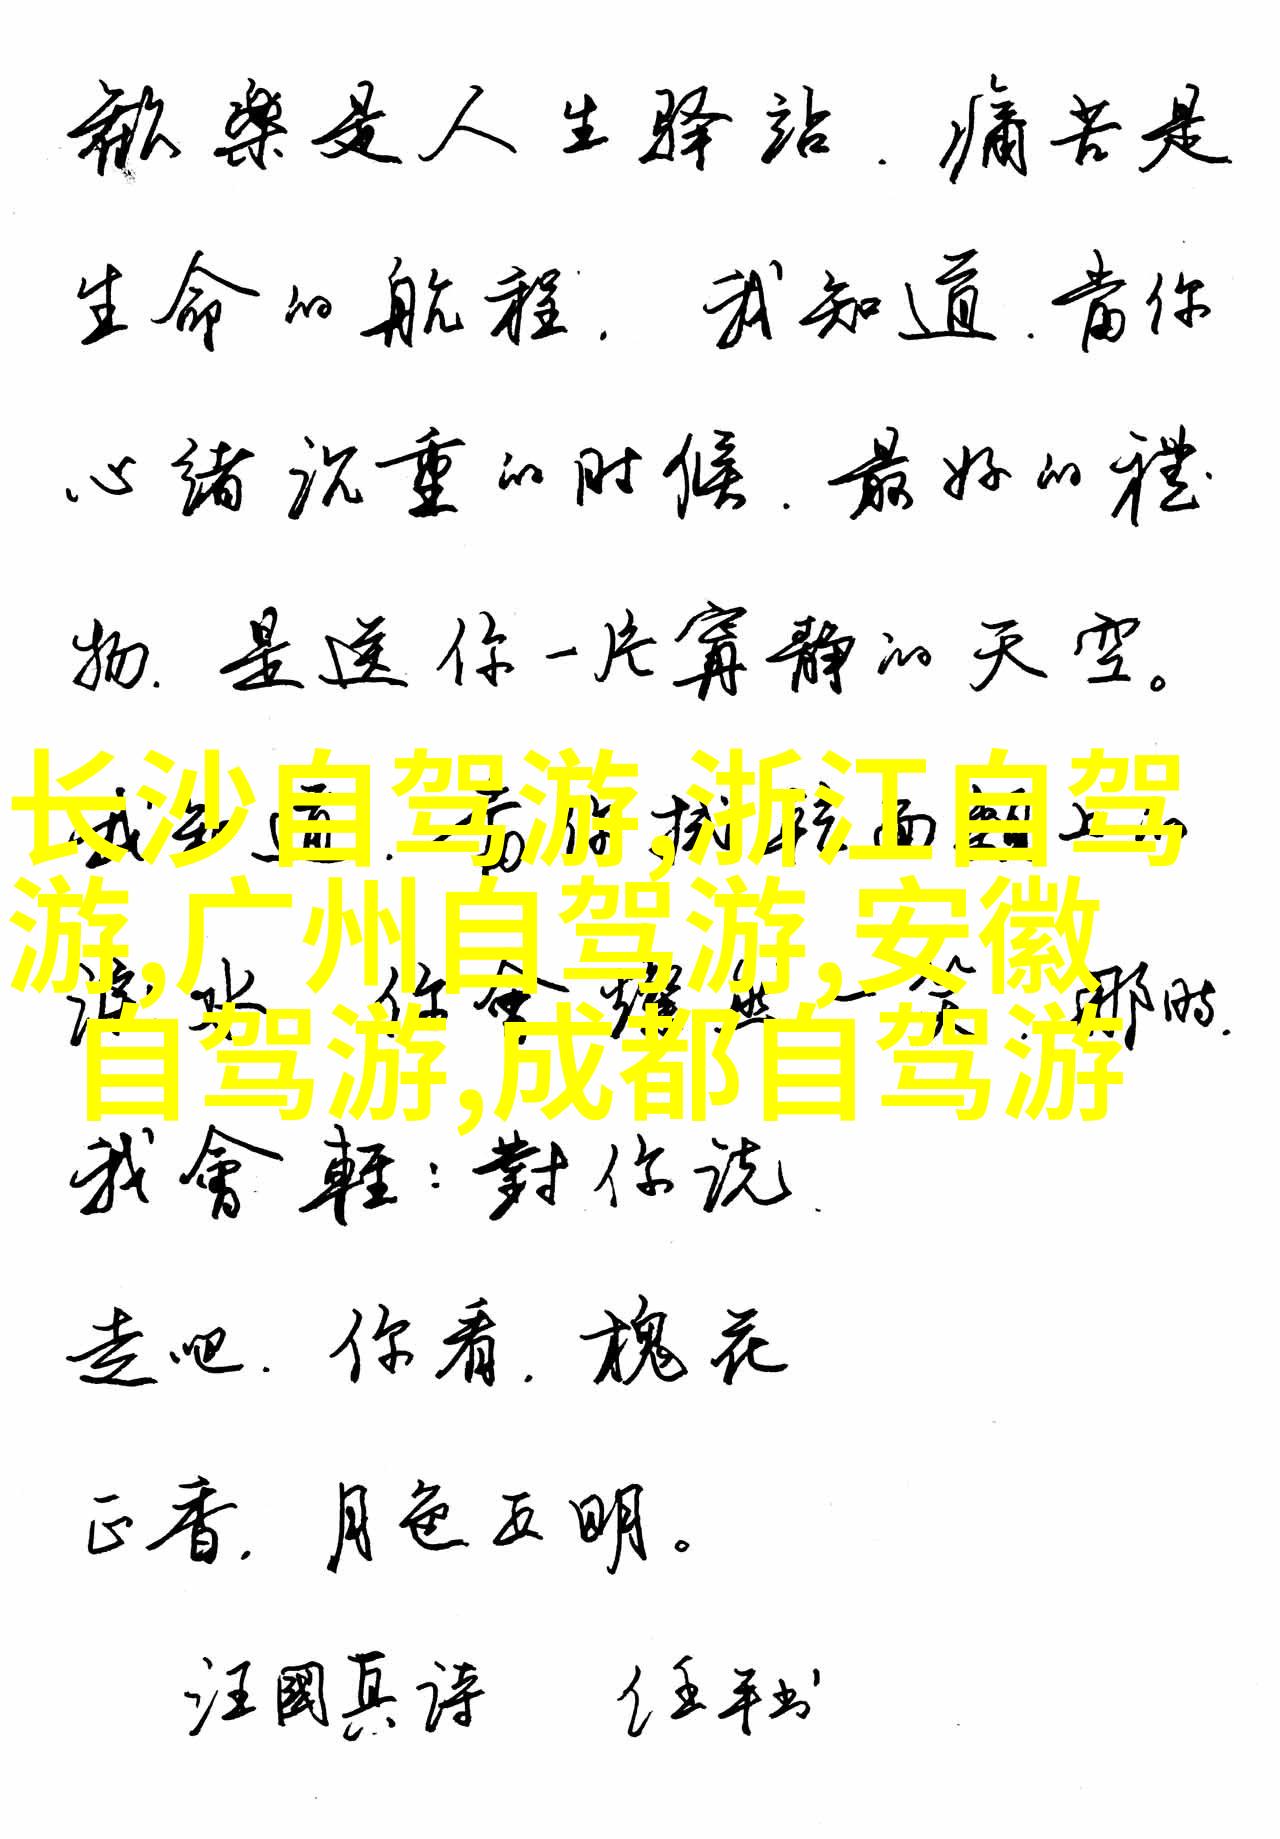 歡樂是人生驿站.痛苦是
生命的航程.我知道.當你
心緒沉重的时候.最好的禮
物.是送你一片寧静的天空。
長沙自驾游,浙江自驾
我知道.當你 面 上
游,广州自驾游,安徽
淚水 你會 然一笑.那时.
自驾游,成都自驾游
我會輕:對你说.
走吧.你看.槐花
正香.月色正明。
汪國真诗 任平书